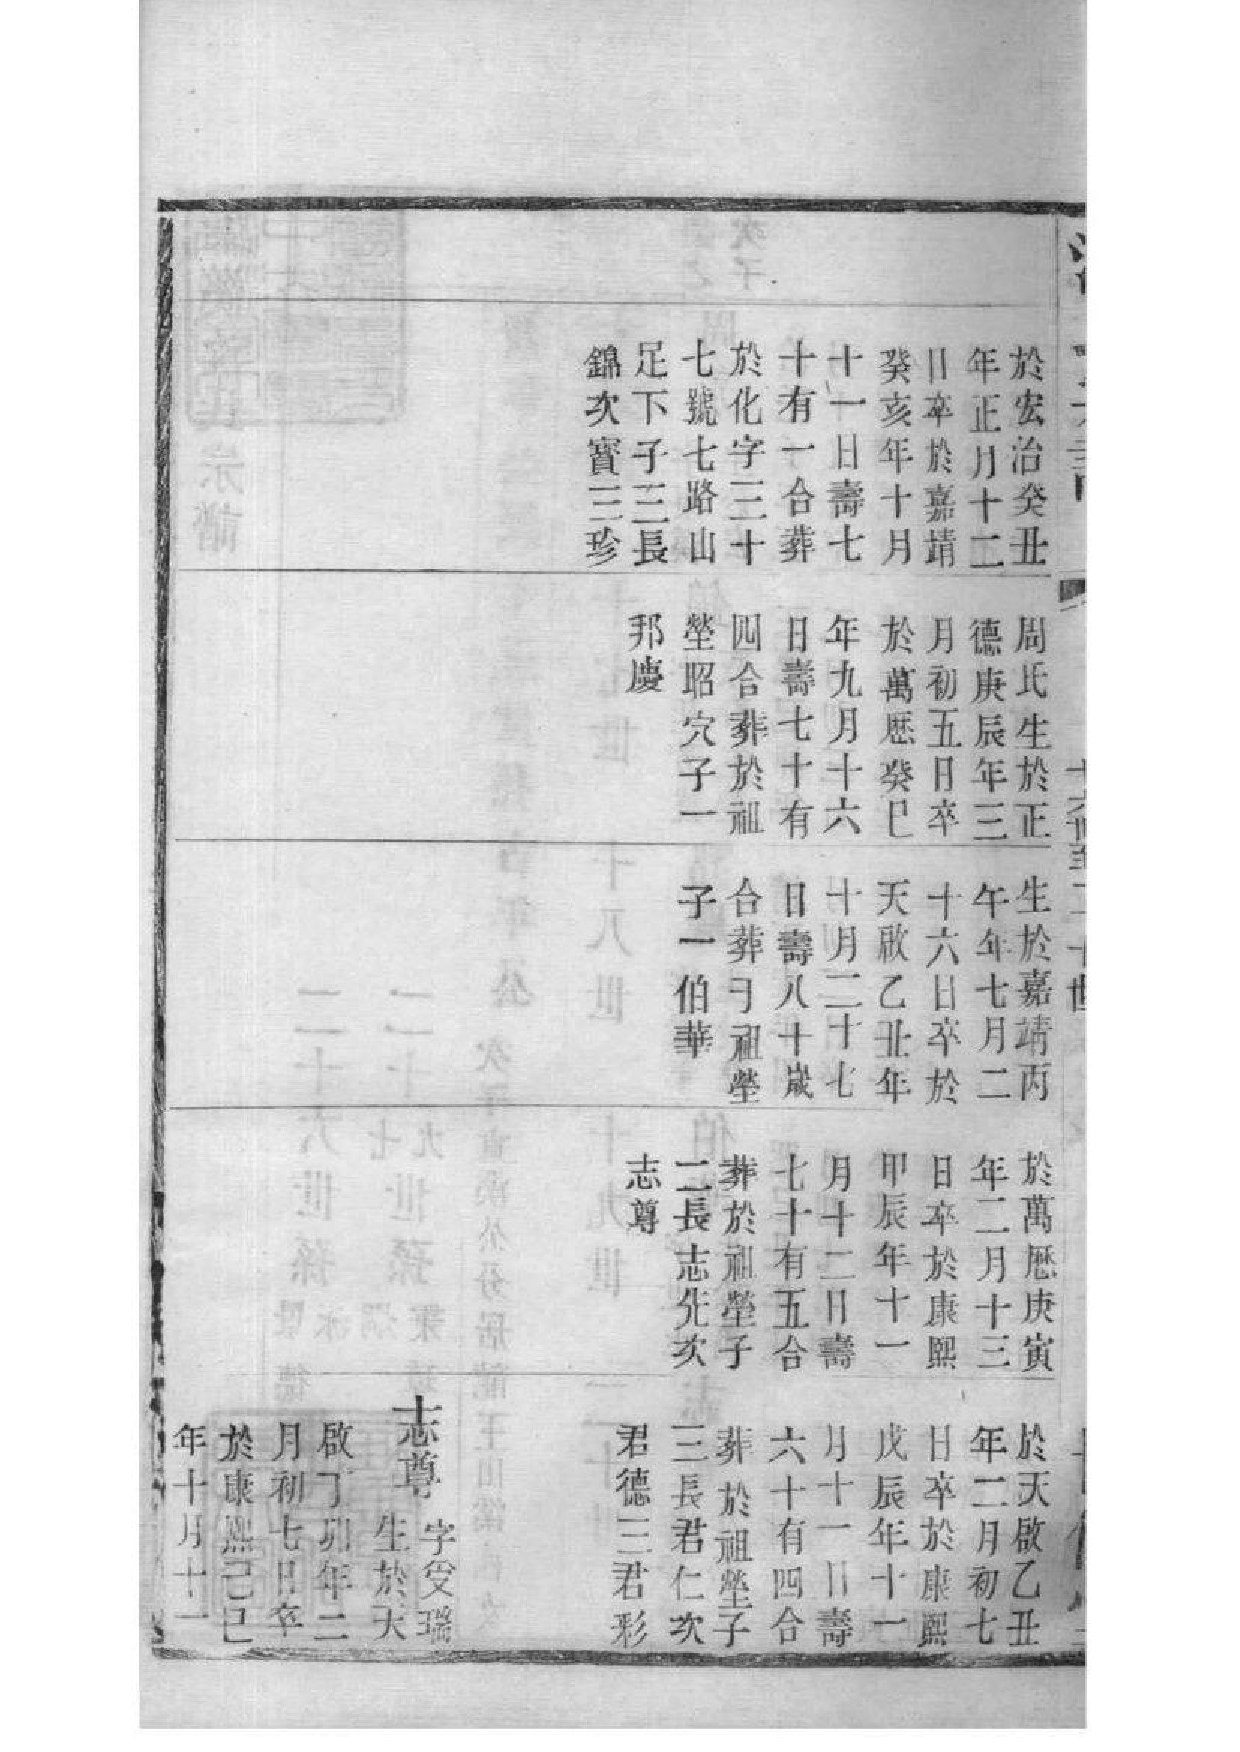 於宏治癸丑
年正月十二
日卒於嘉靖
癸亥年十月
十一日壽七
十有一合葬
於化字三十
七號七路山
足下子三長
錦次寳三珍
周氏生於正
德庚辰年三
月初五日卒
於萬厯癸巳
年九月十六
日壽七十有
四合葬於祖
塋昭穴子一
邦慶
生於嘉靖丙
午年七月二
十六日卒於
天啟乙丑年
十月二十七
日壽八十歲
合葬于祖塋
子一伯華
於萬厯庚寅
年二月十三
日卒於康熙
甲辰年十一
月十二日壽
七十有五合
葬於祖塋子
二長志先次
志尊
於天啟乙丑
年二月初七
日卒於康熙
戊辰年十一
月十一日壽
六十有四合
葬於祖塋子
三長君仁次
君德三君彩
志尊 字受瑞
生於天
啟丁卯年二
月初七日卒
於康熙己巳
年十月十一